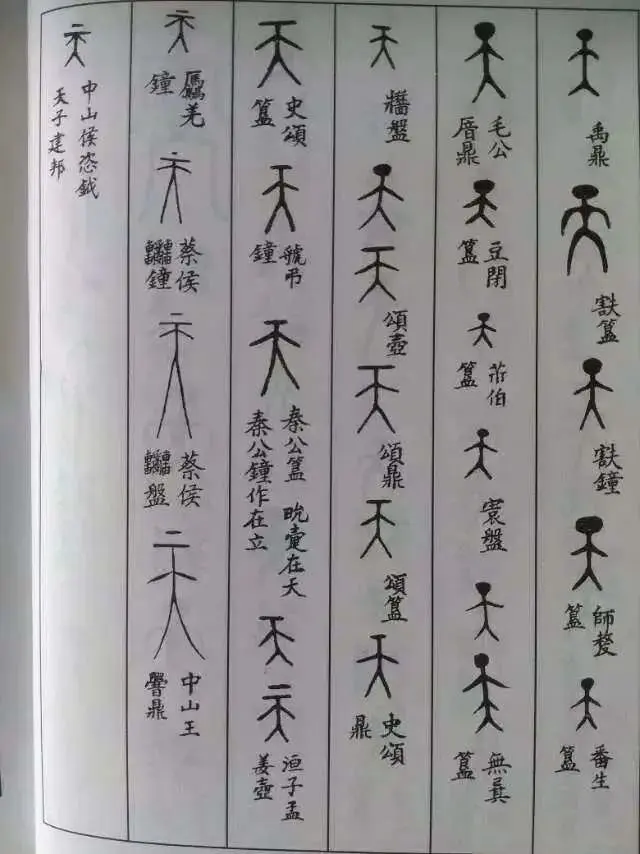 禹鼎
㝬簋
㝬鐘
師
簋
番生
簋
毛公
㕆鼎
豆閉
簋
伯
簋
寰盤
無㠱
簋
牆盤
頌壺
頌鼎
頌簋
史頌
鼎
史頌
簋
虢弔
鐘
秦公簋 畯疐在天
秦公鐘作在立
洹子孟
姜壺
羌
鐘
蔡侯
鐘
蔡侯
盤
中山王
鼎
中山侯恣鉞
天子建邦